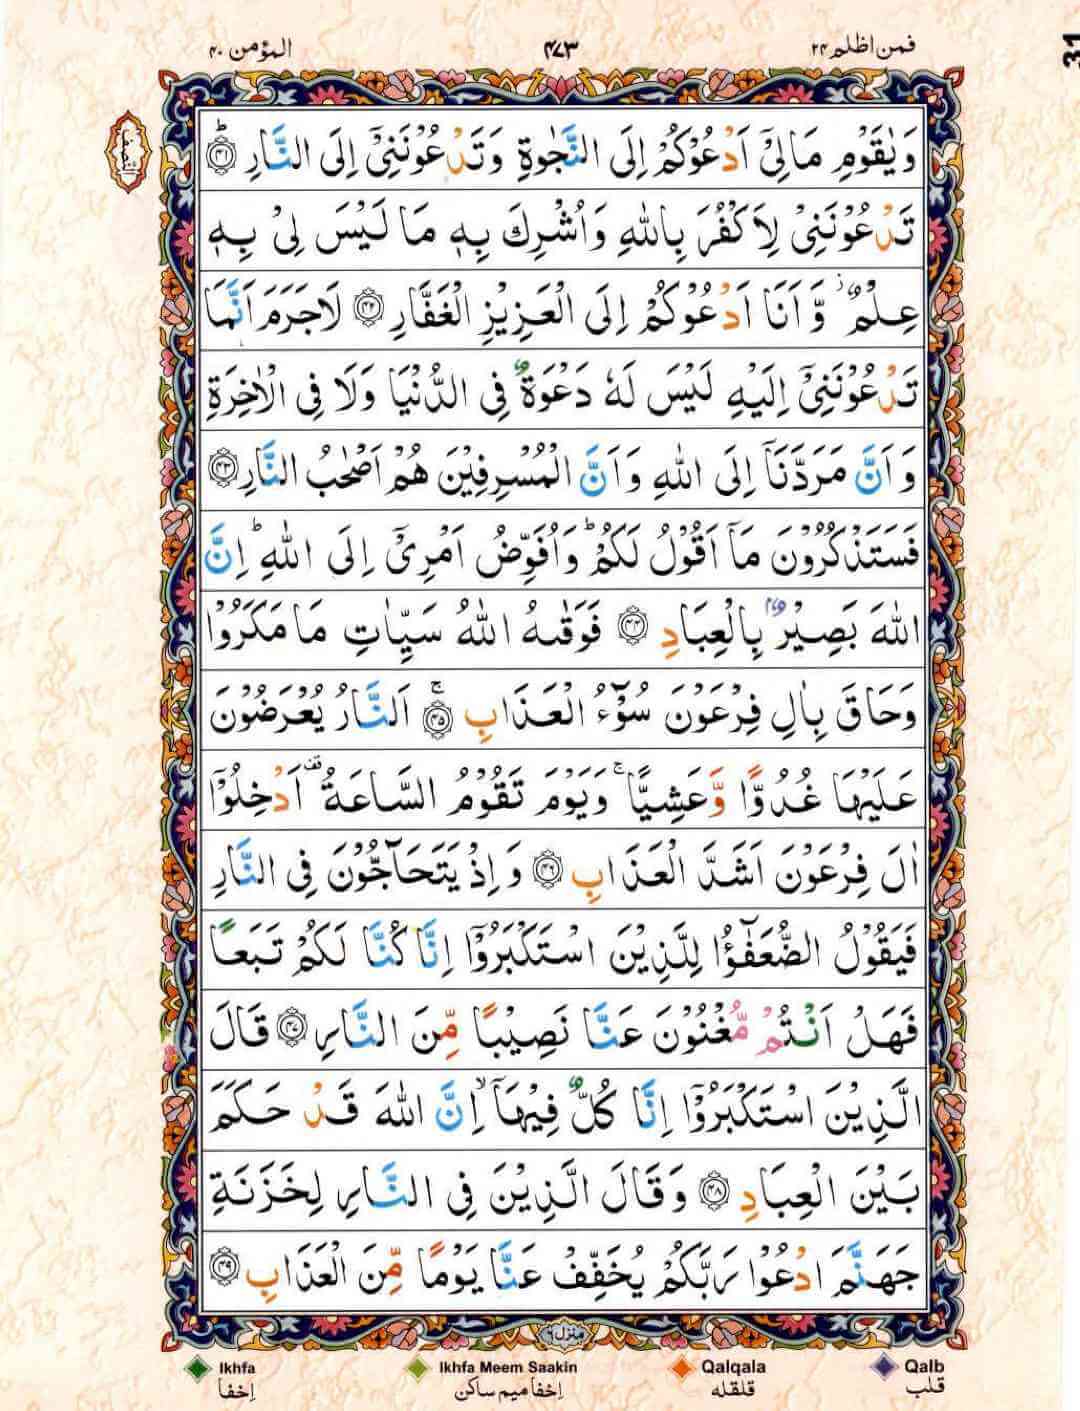 فمن اظلم ۲۴
۴۷۳
المؤمن ۴۰
31
النصف
وَيٰقَوْمِ مَا لِىْۤ اَدْعُوْكُمْ اِلَى النَّجٰوةِ وَتَدْعُوْنَنِىْۤ اِلَى النَّارِؕ‏ ﴿۴۱﴾
تَدْعُوْنَنِىْ لِاَكْفُرَ بِاللّٰهِ وَاُشْرِكَ بِهٖ مَا لَيْسَ لِىْ بِهٖ
عِلْمٌ ۡ وَّاَنَا اَدْعُوْكُمْ اِلَى الْعَزِيْزِ الْغَفَّارِ ﴿۴۲﴾ لَا جَرَمَ اَنَّمَا
تَدْعُوْنَنِىْۤ اِلَيْهِ لَيْسَ لَهٗ دَعْوَةٌ فِى الدُّنْيَا وَلَا فِى الْاٰخِرَةِ
وَاَنَّ مَرَدَّنَاۤ اِلَى اللّٰهِ وَاَنَّ الْمُسْرِفِيْنَ هُمْ اَصْحٰبُ النَّارِ ﴿۴۳﴾
فَسَتَذْكُرُوْنَ مَاۤ اَقُوْلُ لَكُمْؕ وَاُفَوِّضُ اَمْرِىْۤ اِلَى اللّٰهِؕ اِنَّ
اللّٰهَ بَصِيْرٌۢ بِالْعِبَادِ ﴿۴۴﴾ فَوَقٰٮهُ اللّٰهُ سَيِّاٰتِ مَا مَكَرُوْا
وَحَاقَ بِاٰلِ فِرْعَوْنَ سُوْٓءُ الْعَذَابِۚ ﴿۴۵﴾ اَلنَّارُ يُعْرَضُوْنَ
عَلَيْهَا غُدُوًّا وَّعَشِيًّاۚ وَيَوْمَ تَقُوْمُ السَّاعَةُ اَدْخِلُوْۤا
اٰلَ فِرْعَوْنَ اَشَدَّ الْعَذَابِ ﴿۴۶﴾ وَاِذْ يَتَحَآجُّوْنَ فِى النَّارِ
فَيَقُوْلُ الضُّعَفٰٓؤُا لِلَّذِيْنَ اسْتَكْبَرُوْۤا اِنَّا كُنَّا لَكُمْ تَبَعًا
فَهَلْ اَنْتُمْ مُّغْنُوْنَ عَنَّا نَصِيْبًا مِّنَ النَّارِ ﴿۴۷﴾ قَالَ
الَّذِيْنَ اسْتَكْبَرُوْۤا اِنَّا كُلٌّ فِيْهَاۤ ۙ اِنَّ اللّٰهَ قَدْ حَكَمَ
بَيْنَ الْعِبَادِ ﴿۴۸﴾ وَقَالَ الَّذِيْنَ فِى النَّارِ لِخَزَنَةِ
جَهَنَّمَ ادْعُوْا رَبَّكُمْ يُخَفِّفْ عَنَّا يَوْمًا مِّنَ الْعَذَابِ ﴿۴۹﴾
منزل ٦
Ikhfa Ikhfa Meem Saakin Qalqala Qalb
اِخفا اِخفا میم ساکن قلقله قلب